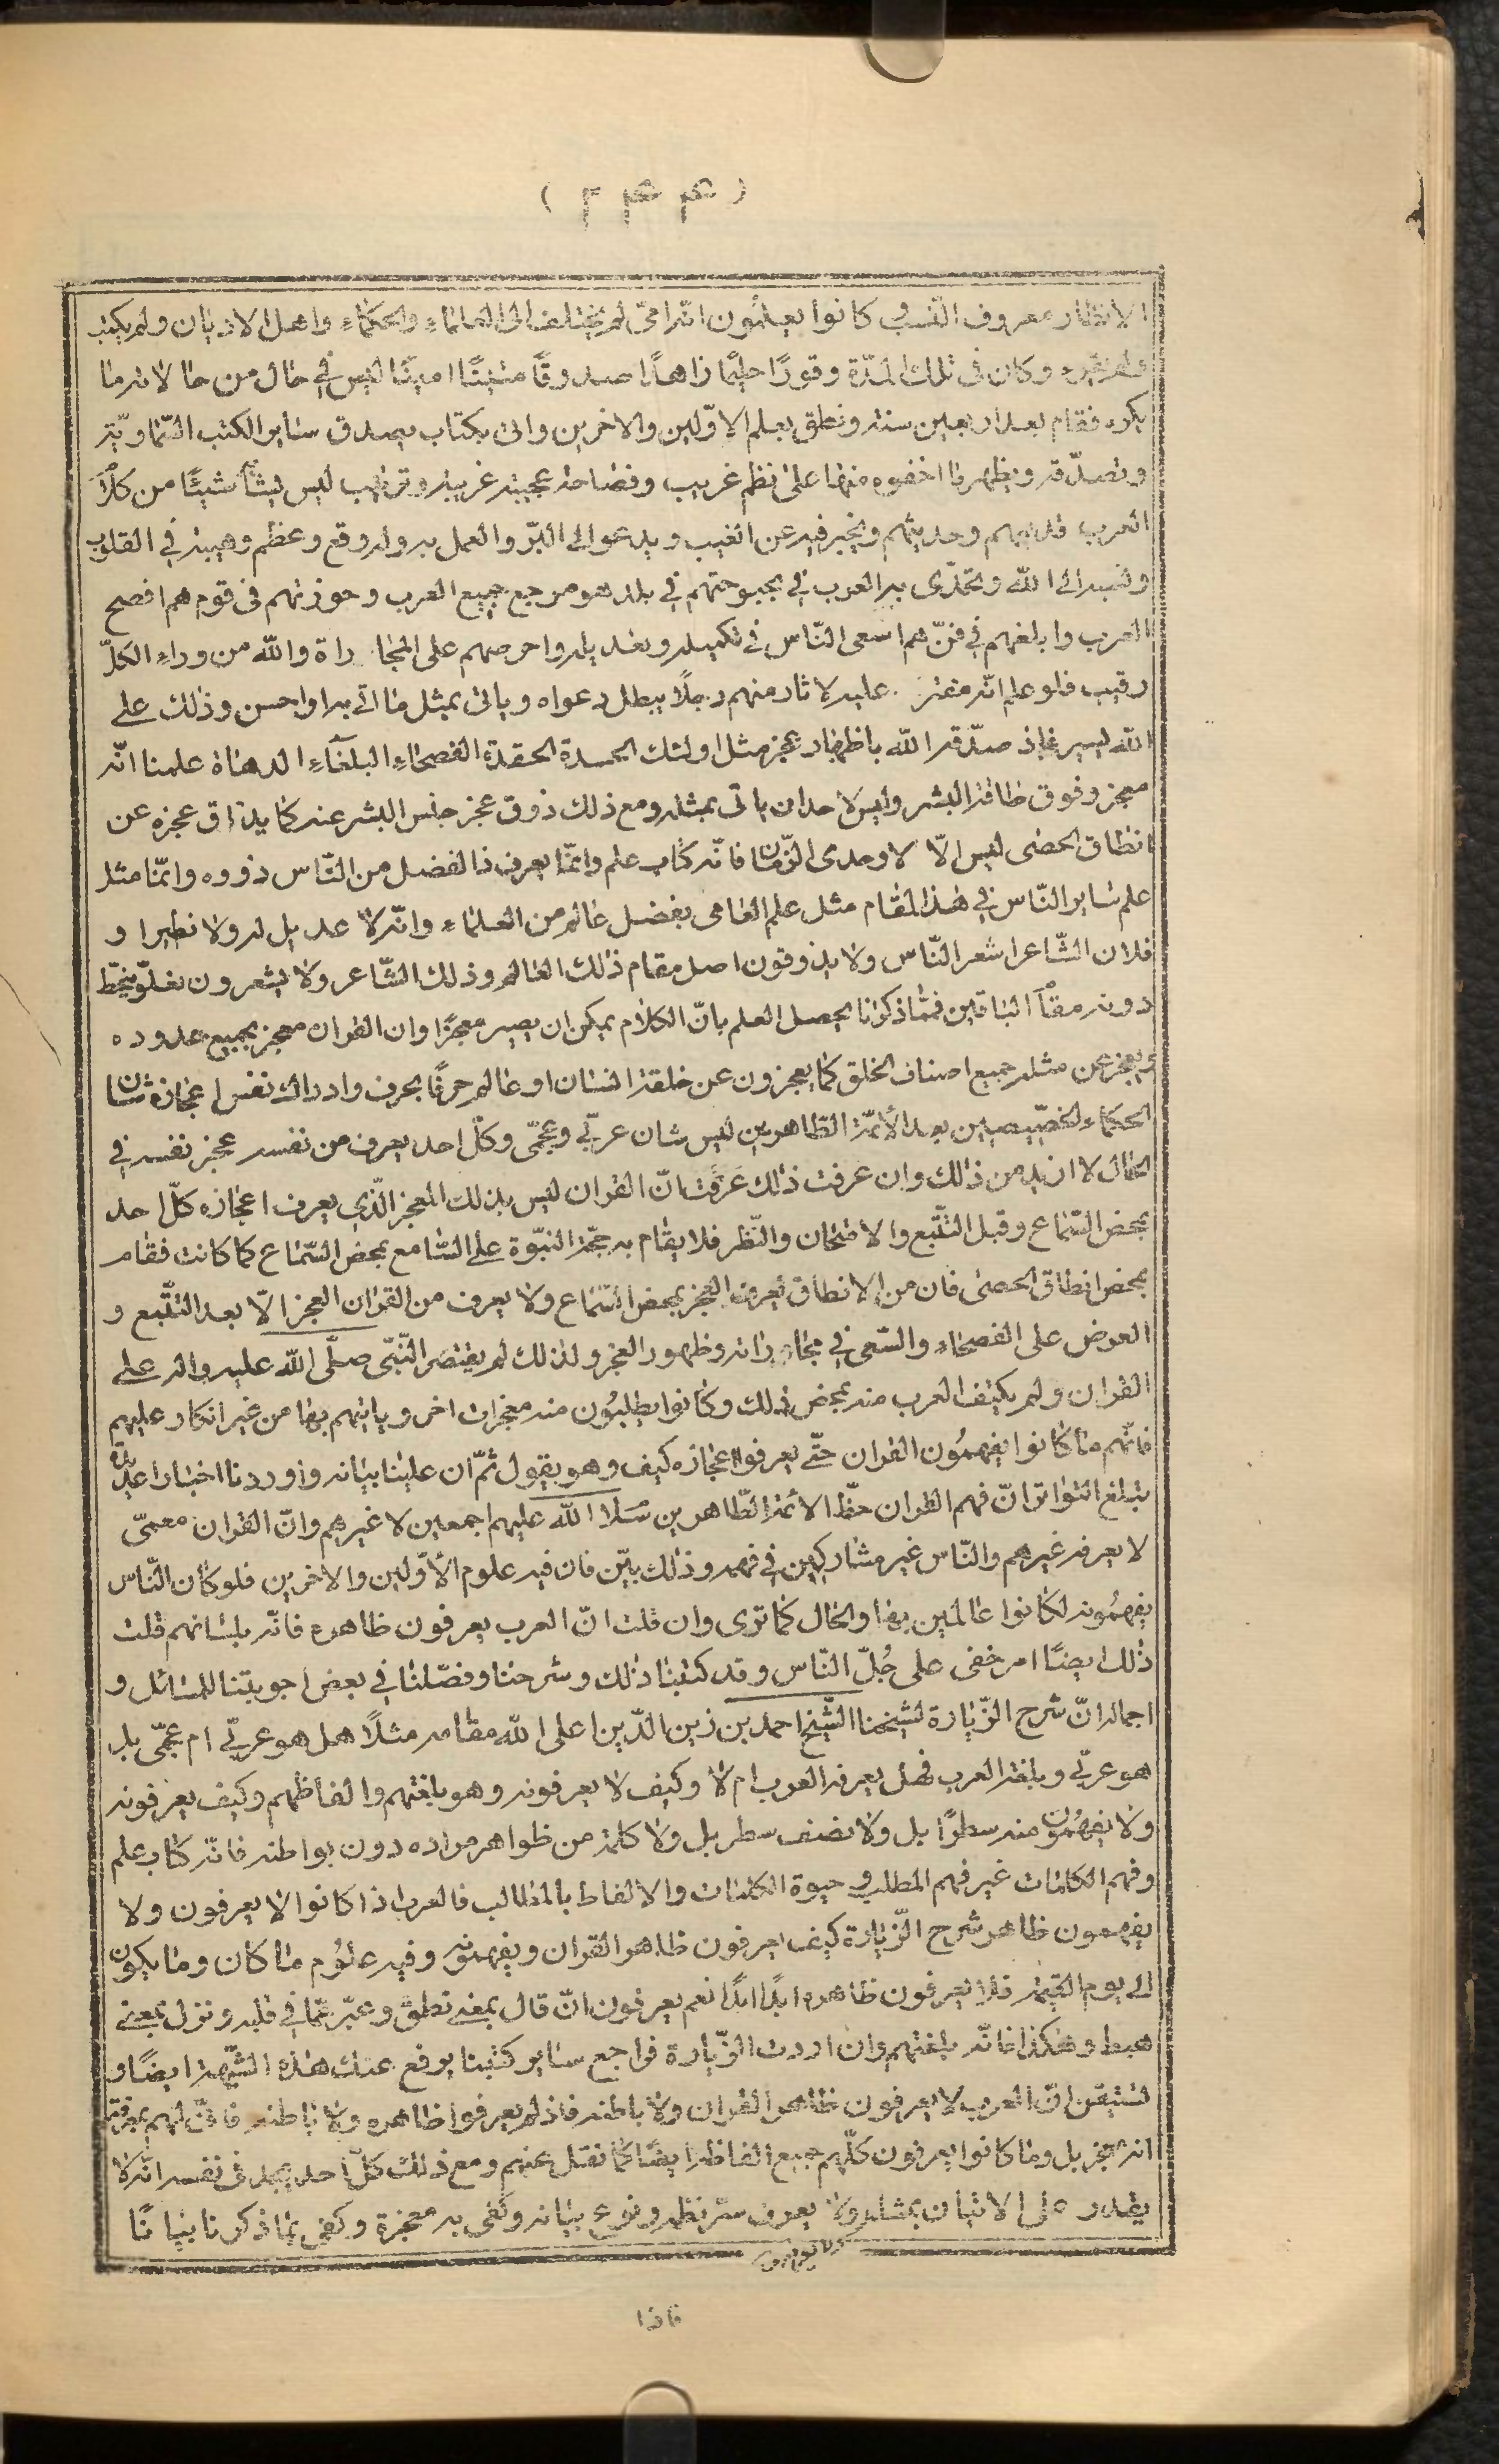 ( ٢ ٤ ٤ )
الانظار معروف النسب كانوا يعلمون انه امى لم يختلف الى العلماء والحكماء واهل الاديان ولم يكتب
ولم يقرء وكان فى تلك المدّة وقورًا حليمًا زاهدًا صدوقًا متينًا امينًا ليس في حال من حالاته ما
يكره فقام بعد اربعين سنة ونطق بعلم الاوّلين والاخرين واتى بكتاب يصدق ساير الكتب السّماويّة
وتصدّقه ويظهر ما اخفوه منها على نظم غريب وفصاحة عجيبة غريبة وترتيب ليس يشابه شيئًا من كلام
العرب قديمهم وحديثهم ويخبر فيه عن الغيب ويدعو الى البرّ والعمل به وله وقع وعظم وهيبة في القلوب
ونسبه الى الله وتحدّى به العرب في بحبوحتهم في بلد هو مرجع جميع العرب وحوزتهم فى قوم هم افصح
العرب وابلغهم في فنّ هم اسعى النّاس في تكميله وتعديله واحرصهم على المجاراة والله من وراء الكلّ
رقيب فلو علم انّه مفتر عليه لاثار منهم رجلًا يبطل دعواه وياتى بمثل ما اتى به او احسن وذلك على
الله يسير فاذ صدّقه الله باظهار عجز مثل اولئك الحسدة الحقدة الفصحاء البلغاء الدهاة علمنا انّه
معجز وفوق طاقة البشر وليس لاحد ان ياتى بمثله ومع ذلك ذوق عجز جنس البشر عنه كما يذاق عجزه عن
انطاق الحصى ليس الّا لاوحدى الزّمان فانّه كتاب علم وانّما يعرف ذا الفضل من النّاس ذووه وانّما مثل
علم ساير النّاس في هذا المقام مثل علم العامى بفضل عالم من العلماء وانّه لا عديل له ولا نظير او
فلان الشّاعر اشعر النّاس ولا يذوقون اصل مقام ذلك العالم وذلك الشّاعر ولا يشعرون بعلوّ ينحطّ
دونه مقام الباقين فممّا ذكرنا يحصل العلم بانّ الكلام يمكن ان يصير معجزًا وان القران معجز بجميع حدوده
ويعجز عن مثله جميع اصناف الخلق كما يعجزون عن خلقة انسان او عالم حرفًا بحرف وادراك نفس اعجازه شان
الحكماء الخصّيصين بعد الأئمّة الطّاهرين ليس شان عربّى وعجمّى وكلّ احد يعرف من نفسه عجز نفسه في
الحال لا ازيد من ذلك وان عرفت ذلك عَرَفت انّ القران ليس بذلك المعجز الّذى يعرف اعجازه كلّ احد
بمحض السّماع وقبل التتّبع والامتحان والنّظر فلا يقام به حجّة النبّوة على السّامع بمحض السّماع كما كانت فقام
بمحض انطاق الحصى فان من الانطاق يعرف العجز بمحض السّماع ولا يعرف من القران العجز الّا بعد التتّبع و
العرض على الفصحاء والسّعى في مجاراته وظهور العجز ولذلك لم يقتصر النّبّى صلّى الله عليه واله على
القران ولم يكتف العرب منه بمحض ذلك وكانوا يطلبُون منه معجزات اخر وياتيهم بها من غير انكار عليهم
فانّهم ما كانوا يفهمُون القران حتّى يعرفوا اعجازه كيف وهو يقول ثمّ ان علينا بيانه واوردنا اخبارا عديدة
تبلغ التواتر انّ فهم القران حظّ الائمة الطّاهرين سلام الله عليهم اجمعين لا غيرهم وانّ القران معمىّ
لا يعرفه غيرهم والنّاس غير مشاركين في فهمه وذلك بيّن فان فيه علوم الأوّلين والاخرين فلو كان النّاس
يفهمُونه لكانوا عالمين بها والحال كما ترى وان قلت انّ العرب يعرفون ظاهره فانّه بلسانهم قلت
ذلك ايضًا امر خفى على جُلّ النّاس وقد كتبنا ذلك وشرحنا وفصّلنا في بعض اجوبتنا للمسائل و
اجماله انّ شرح الزّيارة لشيخنا الشّيخ احمد بن زين الدّين اعلى الله مقامه مثلًا هل هو عربّى ام عجمّى بل
هو عربّى وبلغة العرب فهل يعرفه العرب ام لا وكيف لا يعرفونه وهو بلغتهم والفاظهم وكيف يعرفونه
ولا يفهمُون منه سطرًا بل ولا نصف سطر بل ولا كلمة من ظواهر مراده دون بواطنه فانّه كتاب علم
وفهم الكلمات غير فهم المطلب وحيوة الكلمات والالفاظ بالمطالب فالعرب اذا كانوا لا يعرفون ولا
يفهمون ظاهر شرح الزّيارة كيف يعرفون ظاهر القران ويفهمونه وفيه علوُم ما كان وما يكون
الى يوم القيمة فلا يعرفون ظاهره ابدًا ابدًا نعم يعرفون انّ قال بمعنى نطق وعبّر عمّا في قلبه ونزل بمعنى
هبط وهكذا فانّه بلغتهم وان اردت الزّيارة فراجع ساير كتبنا يرفع عنك هذه الشّبهة ايضًا و
لتتيقن انّ العرب لا يعرفون ظاهر القران ولا باطنه فاذ لم يعرفوا ظاهره ولا باطنه فانّى لهم بمعرفة
انه معجز بل وما كانوا يعرفون كلّهم جميع الفاظه ايضًا كما نقل عنهم ومع ذلك كلّ احد يجد فى نفسه انّه لا
يقدر على الاتيان بمثله ولا يعرف سرّ نظمه ونوع بيانه وكفى به معجزة وكفى بما ذكرنا بيانًا
فاذا